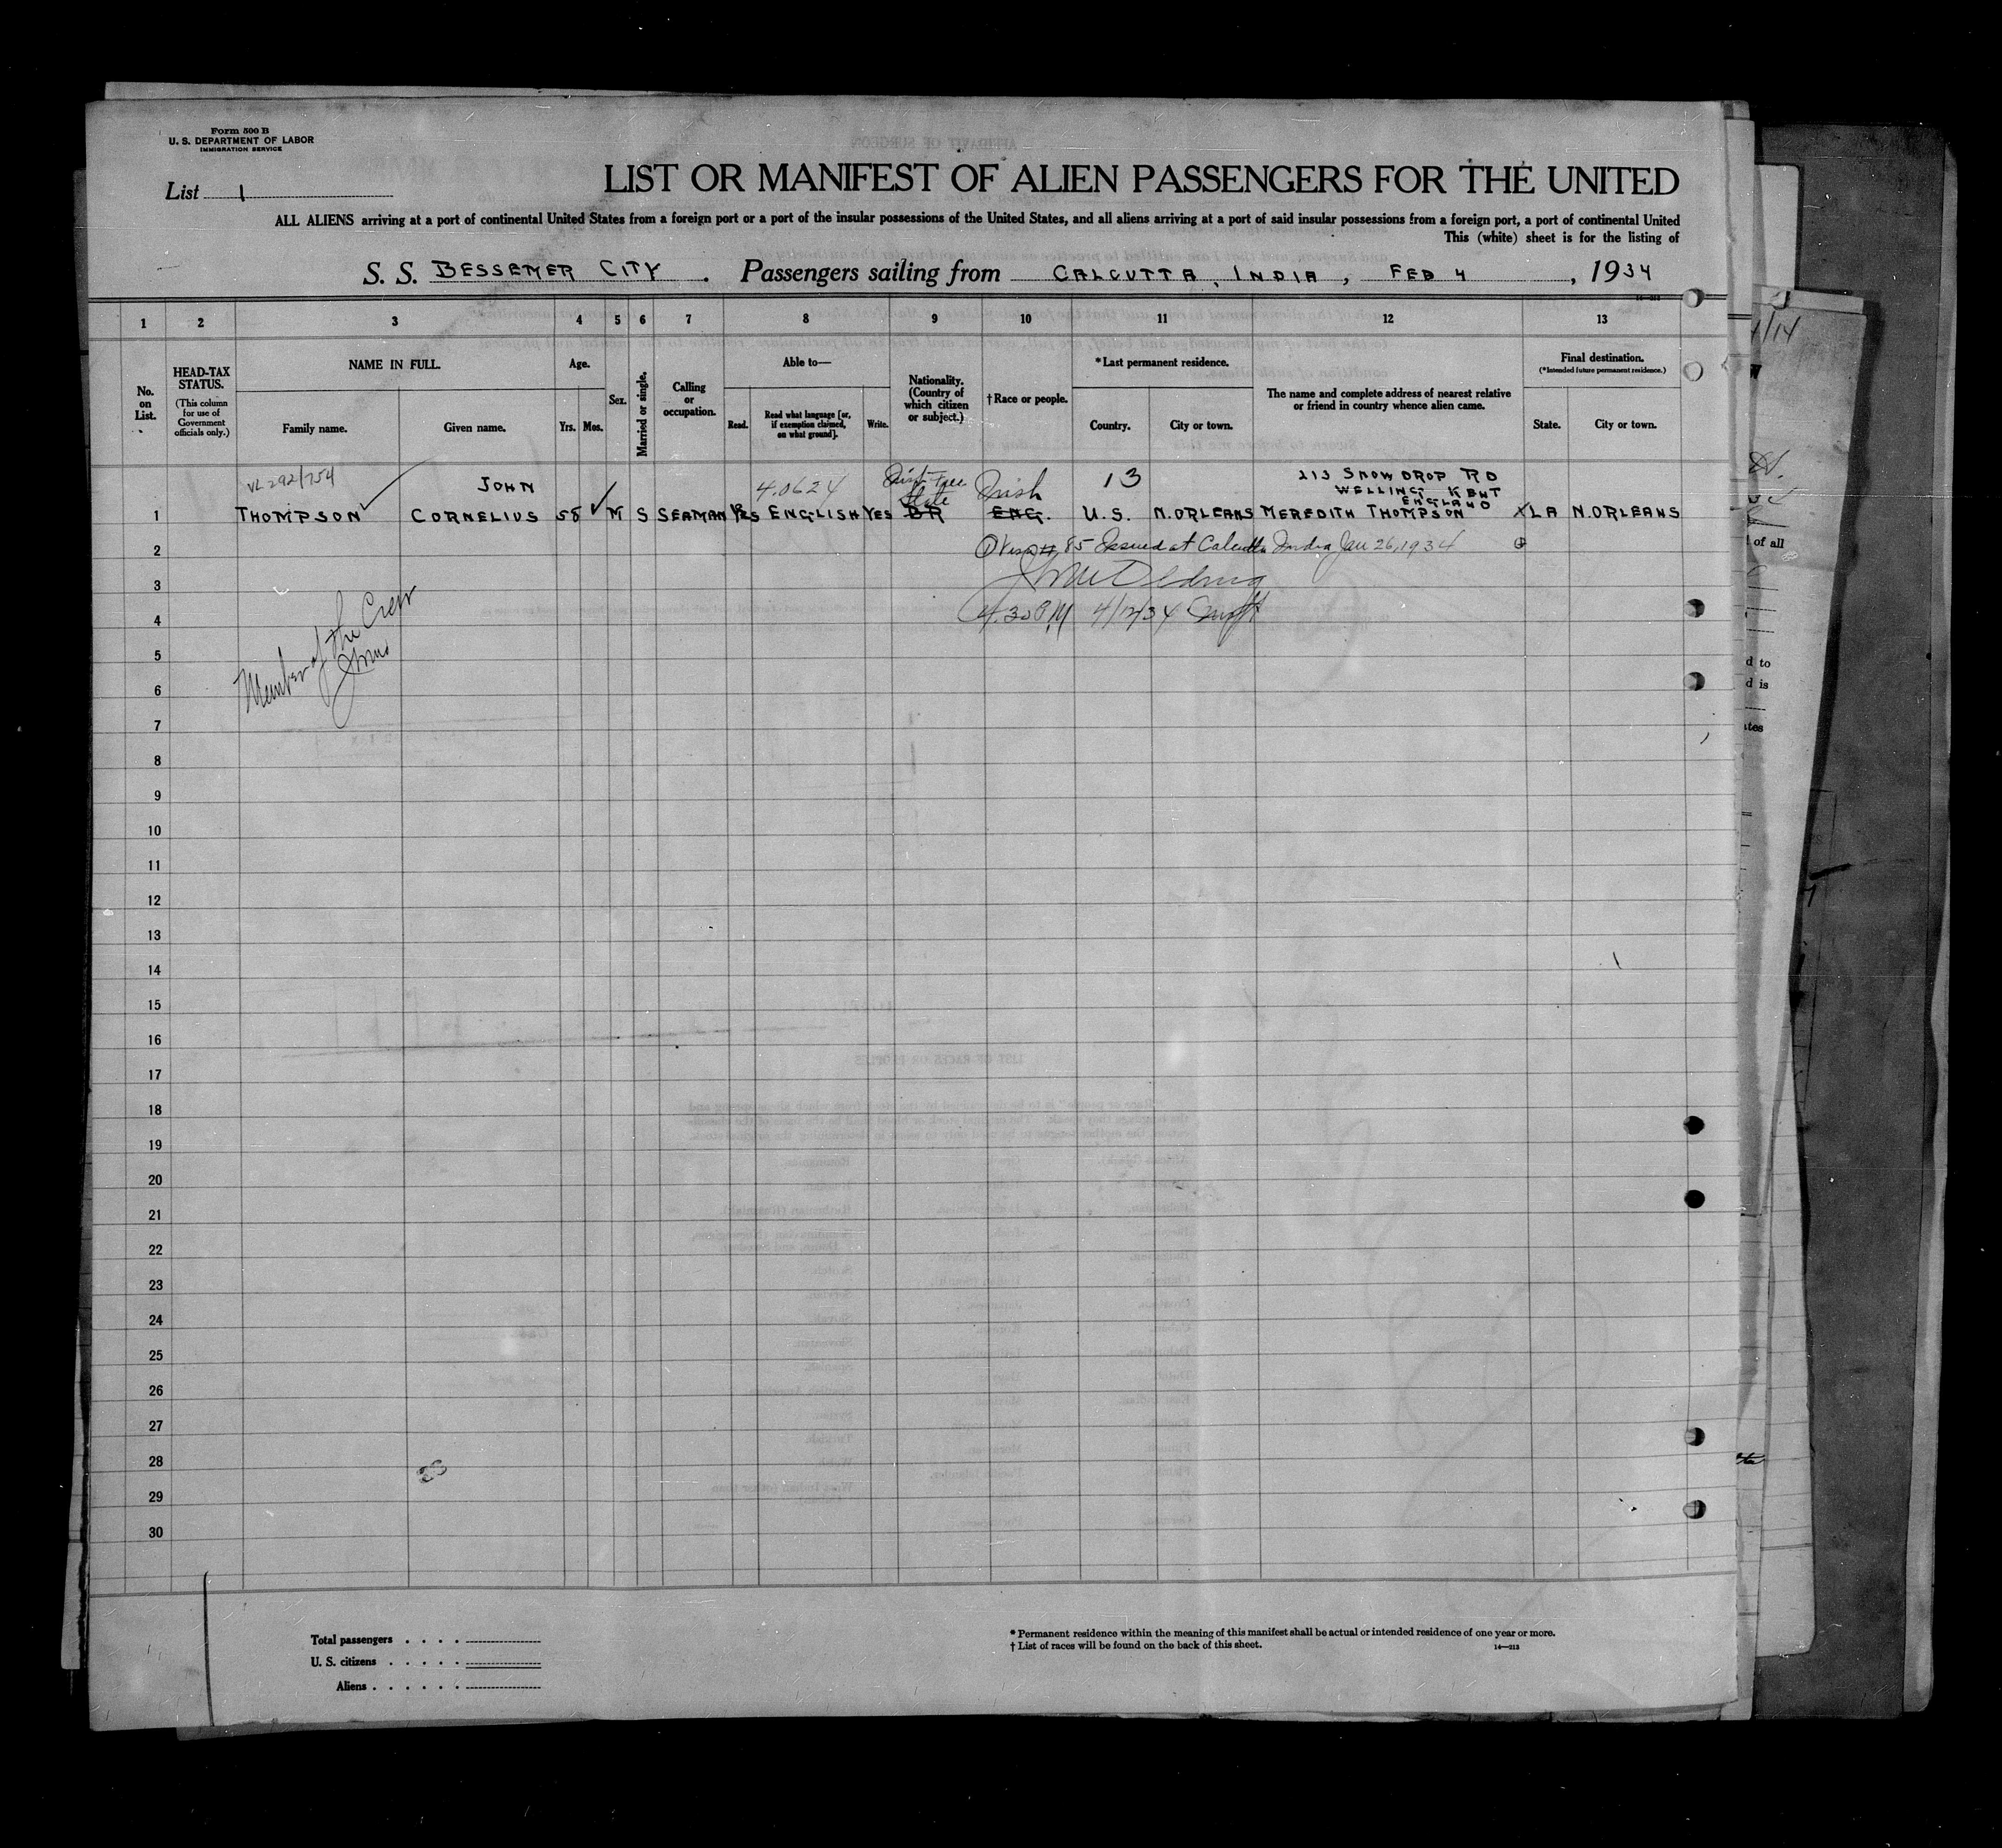 Form 500 B
U. S. DEPARTMENT OF LABOR
IMMIGRATION SERVICE
List 1
LIST OR MANIFEST OF ALIEN PASSENGERS FOR THE UNITED
ALL ALIENS arriving at a port of continental United States from a foreign port or a port of the insular possessions of the United States, and all aliens arriving at a port of said insular possessions from a foreign port, a port of continental United
This (white) sheet is for the listing of
S. S. BESSEMER CITY. Passengers sailing from CALCUTTA, INDIA, FEB 4, 1934
1 2 3 4 5 6 7 8 9 10 11 12 13
No. on List.
HEAD-TAX STATUS.
(This column for use of Government officials only.)
NAME IN FULL.
Family name.
Given name.
Age.
Yrs. Mos.
Sex.
Married or single.
Calling or occupation.
Able to—
Read.
Read what language [or, if exemption claimed, on what ground].
Write.
Nationality. (Country of which citizen or subject.)
† Race or people.
* Last permanent residence.
Country.
City or town.
The name and complete address of nearest relative or friend in country whence alien came.
Final destination.
(*Intended future permanent residence.)
State.
City or town.
VL 292/754 JOHN 4.0624 Free State Irish 13 213 SNOW DROP RD
WELLING KENT
ENGLAND
1 THOMPSON CORNELIUS 58 M S SEAMAN YES ENGLISH YES BR ENG. U.S. N.ORLEANS MEREDITH THOMPSON X LA N.ORLEANS
2 Visa # 85 Issued at Calcutta India Jan 26, 1934
3
4 4.30 PM 4/12/34
5
Member of the Crew
6
7
8
9
10
11
12
13
14
15
16
17
18
19
20
21
22
23
24
25
26
27
28
29
30
Total passengers . . . .
U. S. citizens . . . . .
Aliens . . . . . .
* Permanent residence within the meaning of this manifest shall be actual or intended residence of one year or more.
† List of races will be found on the back of this sheet.
14—213